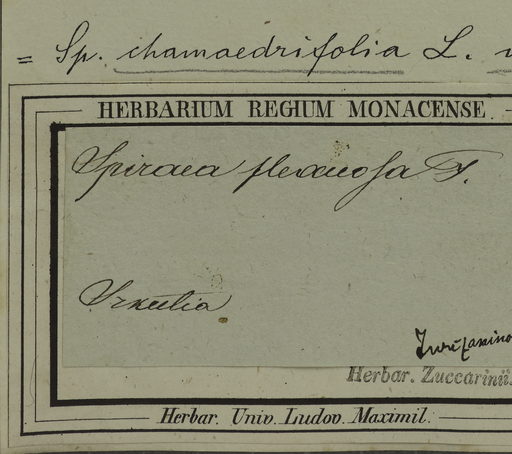 = Sp. chamaedrifolia L.
HERBARIUM REGIUM MONACENSE.
Spiraea flexuosa F.
Irkutia
Herbar. Zuccarinii.
Herbar. Univ. Ludov. Maximil.